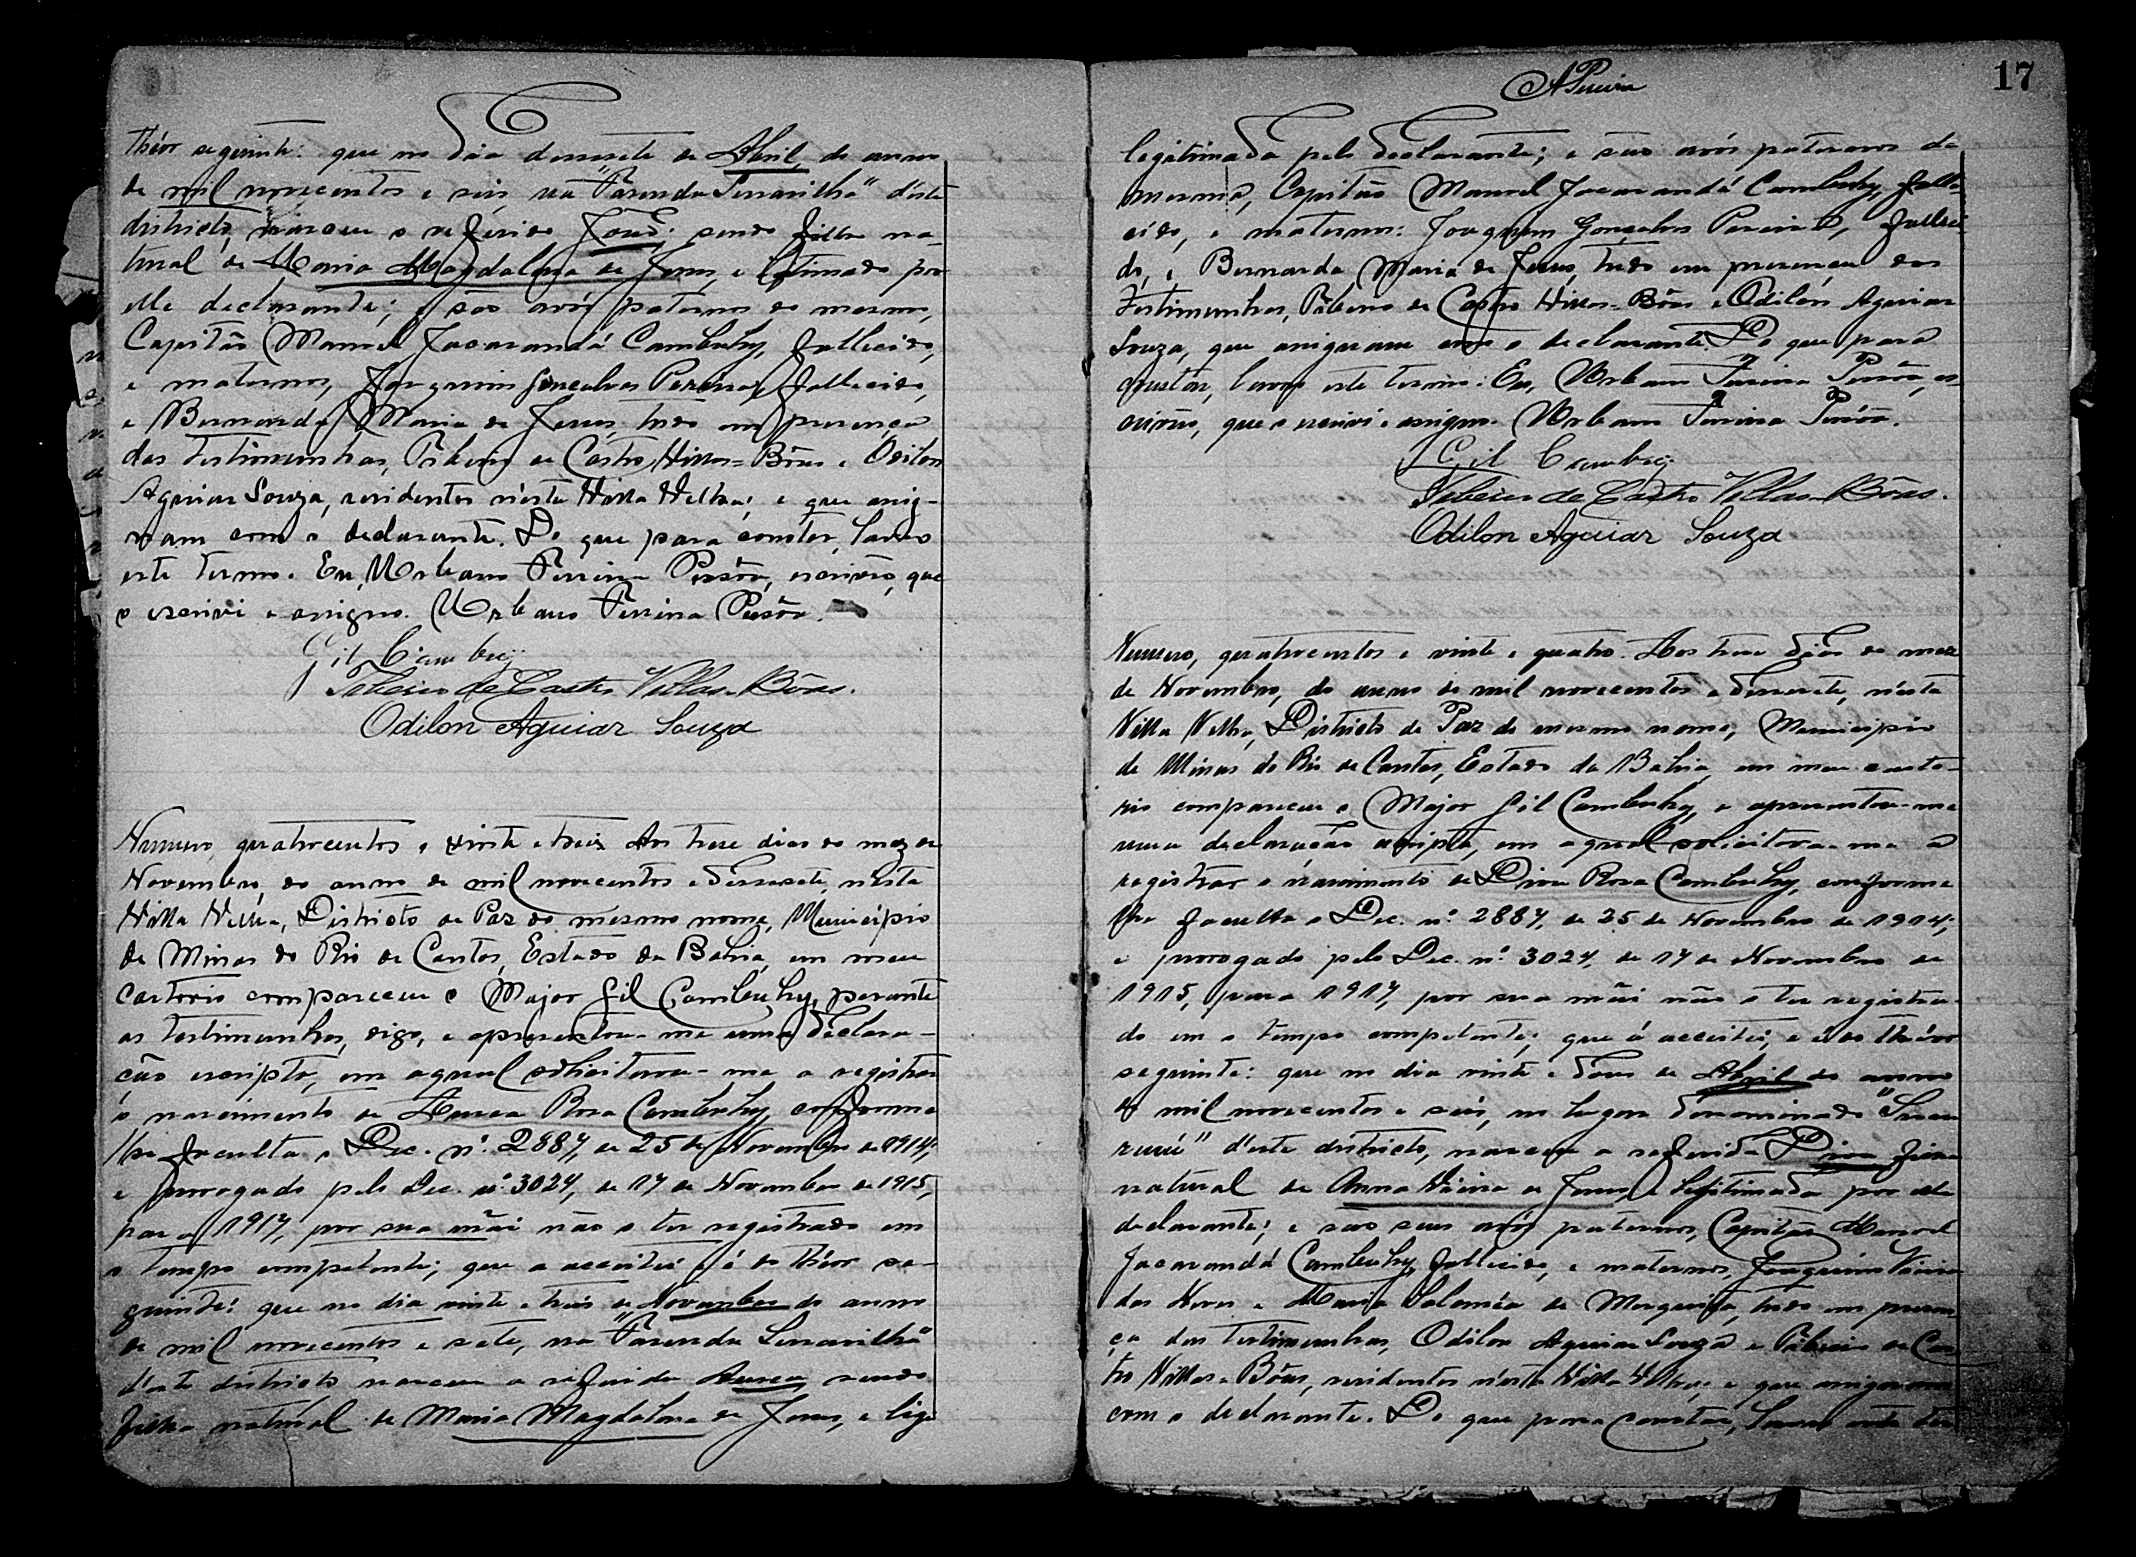 Théor seguinte: que no dia desesete de Abril, do anno
de mil novecentos e seis, na "Fazenda Serrarilha" d'este
districto, nasceu o referido José; sendo filho na-
tural de Maria Magdalena de Jesus, e legitimado por
elle declarante; e são avós paternos do mesmo,
Capitão Manoel Jacarandá Cambuhy, fallecido,
e maternos, Joaquim Gonçalves Pereira, fallecido,
e Bernarda Maria de Jesus, tudo em presença
das testimunhas, Tiberio de Castro Villas-Bôas e Odilon
Aguiar Souza, residentes n'esta Villa Velha; e que assig-
nam com o declarante. Do que para constar, lavro
este termo. Eu, Urbano Ferreira Pessôa, escrivão, que
o escrivi e assigno. Urbano Ferreira Pessôa.
Gil Cambuy
Tiberio de Castro Villas-Bôas.
Odilon Aguiar Souza
Numero, quatrocentos e vinte e treis. Aos treze dias do mez de
Novembro, do anno de mil novecentos e desesete, n'esta
Villa Velha, Districto de Paz do mesmo nome, Municipio
de Minas do Rio de Contas, Estado da Bahia, em meu
cartorio compareceu o Major Gil Cambuhy, perante
as testimunhas, digo, e apresentou-me uma declara-
ção escripta, em a qual solicitava-me a registrar
o nascimento de Aurea Rosa Cambuhy, conforme
lhe faculta o Dec. nº. 2887, de 25 de Novembro de 1914,
e prorogado pelo Dec. nº 3024, de 17 de Novembro de 1915,
para 1917, por sua mãi não o ter registrado em
o tempo competente; que a acceitei e é do théor se-
guinte: que no dia vinte e treis de Novembro do anno
de mil novecentos e sete, na "Fazenda Serrarilha"
d'este districto nasceu a referida Aurea, sendo
filha natural de Maria Magdalena de Jesus, e legi
17
APereira
legitimada pelo declarante; e são avós paternos da
mesma, Capitão Manoel Jacarandá Cambuhy, falle-
cido, e maternos: Joaquim Gonçalves Pereira, falleci
do, e Bernarda Maria de Jesus, tudo em presença das
testimunhas, Tiberio de Castro Villas-Bôas e Odilon Aguiar
Souza, que assignam com o declarante. Do que para
constar, lavro este termo: Eu, Urbano Ferreira Pessôa, es-
crivão, que o escrivi e assigno. Urbano Ferreira Pessôa.
Gil Cambuy
Tiberio de Castro Villas-Bôas.
Odilon Aguiar Souza
Numero, quatrocentos e vinte e quatro. Aos treze dias do mez
de Novembro, do anno de mil novecentos e desesete, n'esta
Villa Velha, Districto de Paz do mesmo nome, Municipio
de Minas do Rio de Contas, Estado da Bahia, em meu carto-
rio compareceu o Major Gil Cambuhy, e apresentou-me
uma declaração escripta, em a qual solicitava-me a
registrar o nascimento de Diva Rosa Cambuhy, conforme
lhe faculta o Dec. nº. 2887, de 25 de Novembro de 1914,
e prorogado pelo Dec. nº. 3024, de 17 de Novembro de
1915, para 1917, por sua mãi não o ter registra-
do em o tempo competente; que á acceitei; e é do théor
seguinte: que no dia vinte e dous de Abril do anno
de mil novecentos e seis, no lugar denominado
d'este districto, nasceu a referida Diva, filha
natural de Anna Vieira de Jesus, e legitimada por elle
declarante; e são seus avós paternos, Capitão Manoel
Jacarandá Cambuhy, fallecido, e maternos, Joaquim Vieira
das Neves e Maria Saloméa de Morgerita, tudo em presen-
ça das testimunhas, Odilon Aguiar Souza e Tiberio de Cas
tro Villas-Bôas, residentes n'esta Villa Velha; e que assignam
com o declarante. Do que para constar, lavro este ter